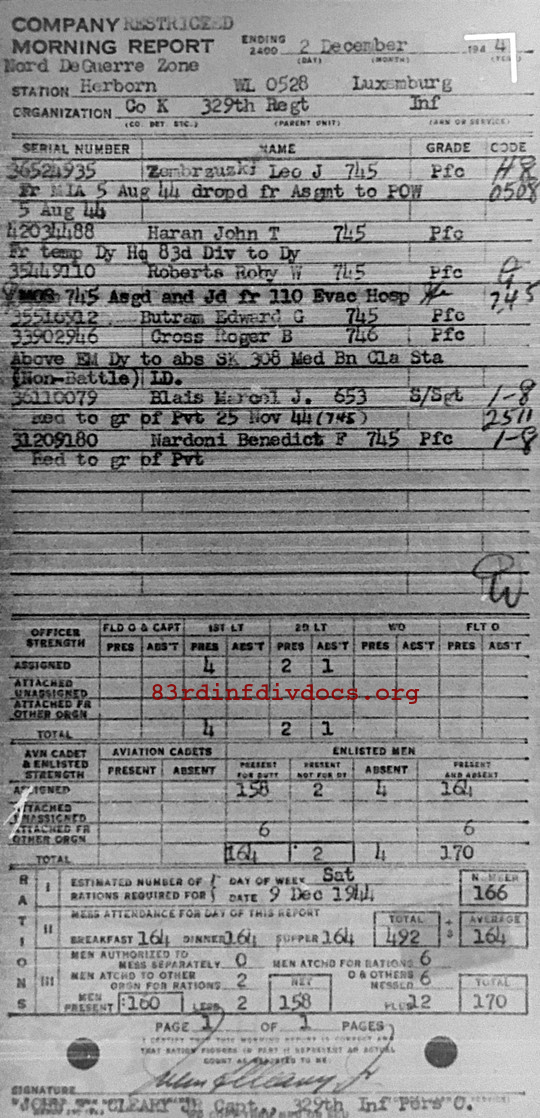 COMPANY RESTRICTED
MORNING REPORT ENDING 2400 2 December 194 4
(DAY) (MONTH) (YEAR)
Nord DeGuerre Zone
STATION Herborn WL 0528 Luxemburg
ORGANIZATION Co K 329th Regt Inf
(CO. DET. ETC.) (PARENT UNIT) (ARM OR SERVICE)
SERIAL NUMBER NAME GRADE CODE
36524935 Zembrzuski Leo J 745 Pfc H8
Fr MIA 5 Aug 44 dropd fr Asgmt to POW 0508
5 Aug 44
42034488 Haran John T 745 Pfc
Fr temp Dy Hq 83d Div to Dy
35449110 Roberts Roby W 745 Pfc
MOS 745 Asgd and Jd fr 110 Evac Hosp 745
35516912 Butram Edward G 745 Pfc
33902946 Cross Roger B 746 Pfc
Above EM Dy to abs SK 308 Med Bn Cla Sta
(Non-Battle) LD.
36110079 Blais Marcel J. 653 S/Sgt 1-8
Red to gr of Pvt 25 Nov 44 (745) 2511
31209180 Nardoni Benedict F 745 Pfc 1-8
Red to gr of Pvt
OFFICER STRENGTH FLD O & CAPT 1ST LT 2D LT WO FLT O
PRES ABS'T PRES ABS'T PRES ABS'T PRES ABS'T PRES ABS'T
ASSIGNED 4 2 1
ATTACHED UNASSIGNED
83rdinfdivdocs.org
ATTACHED FR OTHER ORGN
TOTAL 4 2 1
AVN CADET & ENLISTED STRENGTH AVIATION CADETS ENLISTED MEN
PRESENT ABSENT PRESENT FOR DUTY PRESENT NOT FOR DY ABSENT PRESENT AND ABSENT
ASSIGNED 158 2 4 164
ATTACHED UNASSIGNED
ATTACHED FR OTHER ORGN 6 6
TOTAL 164 2 4 170
RATIONS
I ESTIMATED NUMBER OF RATIONS REQUIRED FOR DAY OF WEEK Sat NUMBER
DATE 9 Dec 1944 166
II MESS ATTENDANCE FOR DAY OF THIS REPORT TOTAL ÷ 3 AVERAGE
BREAKFAST 164 DINNER 164 SUPPER 164 492 164
III MEN AUTHORIZED TO MESS SEPARATELY 0 MEN ATCHD FOR RATIONS 6
MEN ATCHD TO OTHER ORGN FOR RATIONS 2 NET O & OTHERS MESSED 6 TOTAL
MEN PRESENT 160 LESS 2 158 PLUS 12 170
PAGE 1 OF 1 PAGES
I CERTIFY THAT THIS MORNING REPORT IS CORRECT AND
THAT RATION FIGURES IN PART II REPRESENT AN ACTUAL
COUNT AS REPORTED TO ME:
SIGNATURE
JOHN CLEARY JR Capt 329th Inf Pers O.